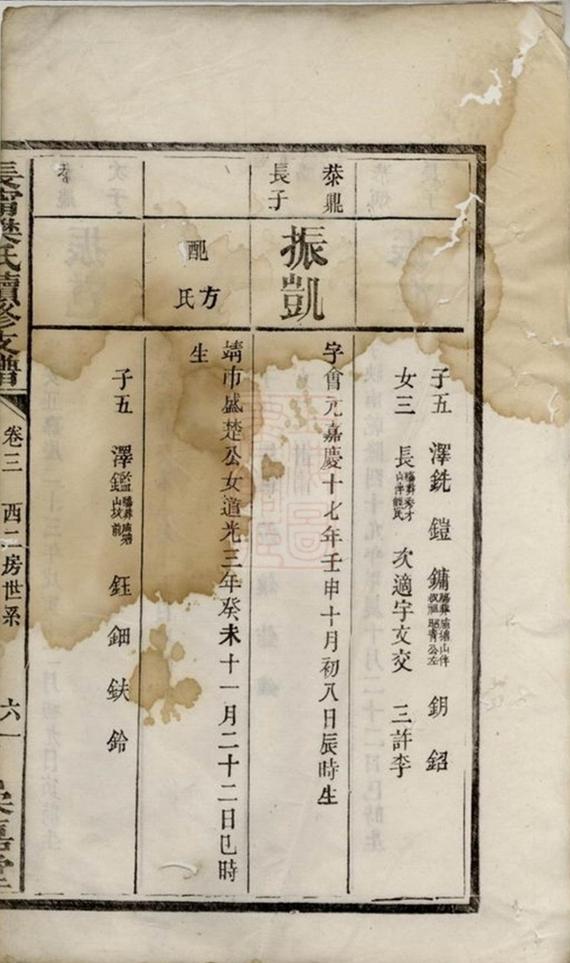 子五 澤銑 鎧 鏞 鈅 鉊
女三 長 次適宇文交 三許李
恭鼎
長子
振凱
字會元嘉慶十七年壬申十月初八日辰時生
配方
氏
靖市盛楚公女道光三年癸未十一月二十二日巳時
生
子五 澤鑑 鈺 鈿 鈇 鈴
恭
卷三 西二房世系 六一